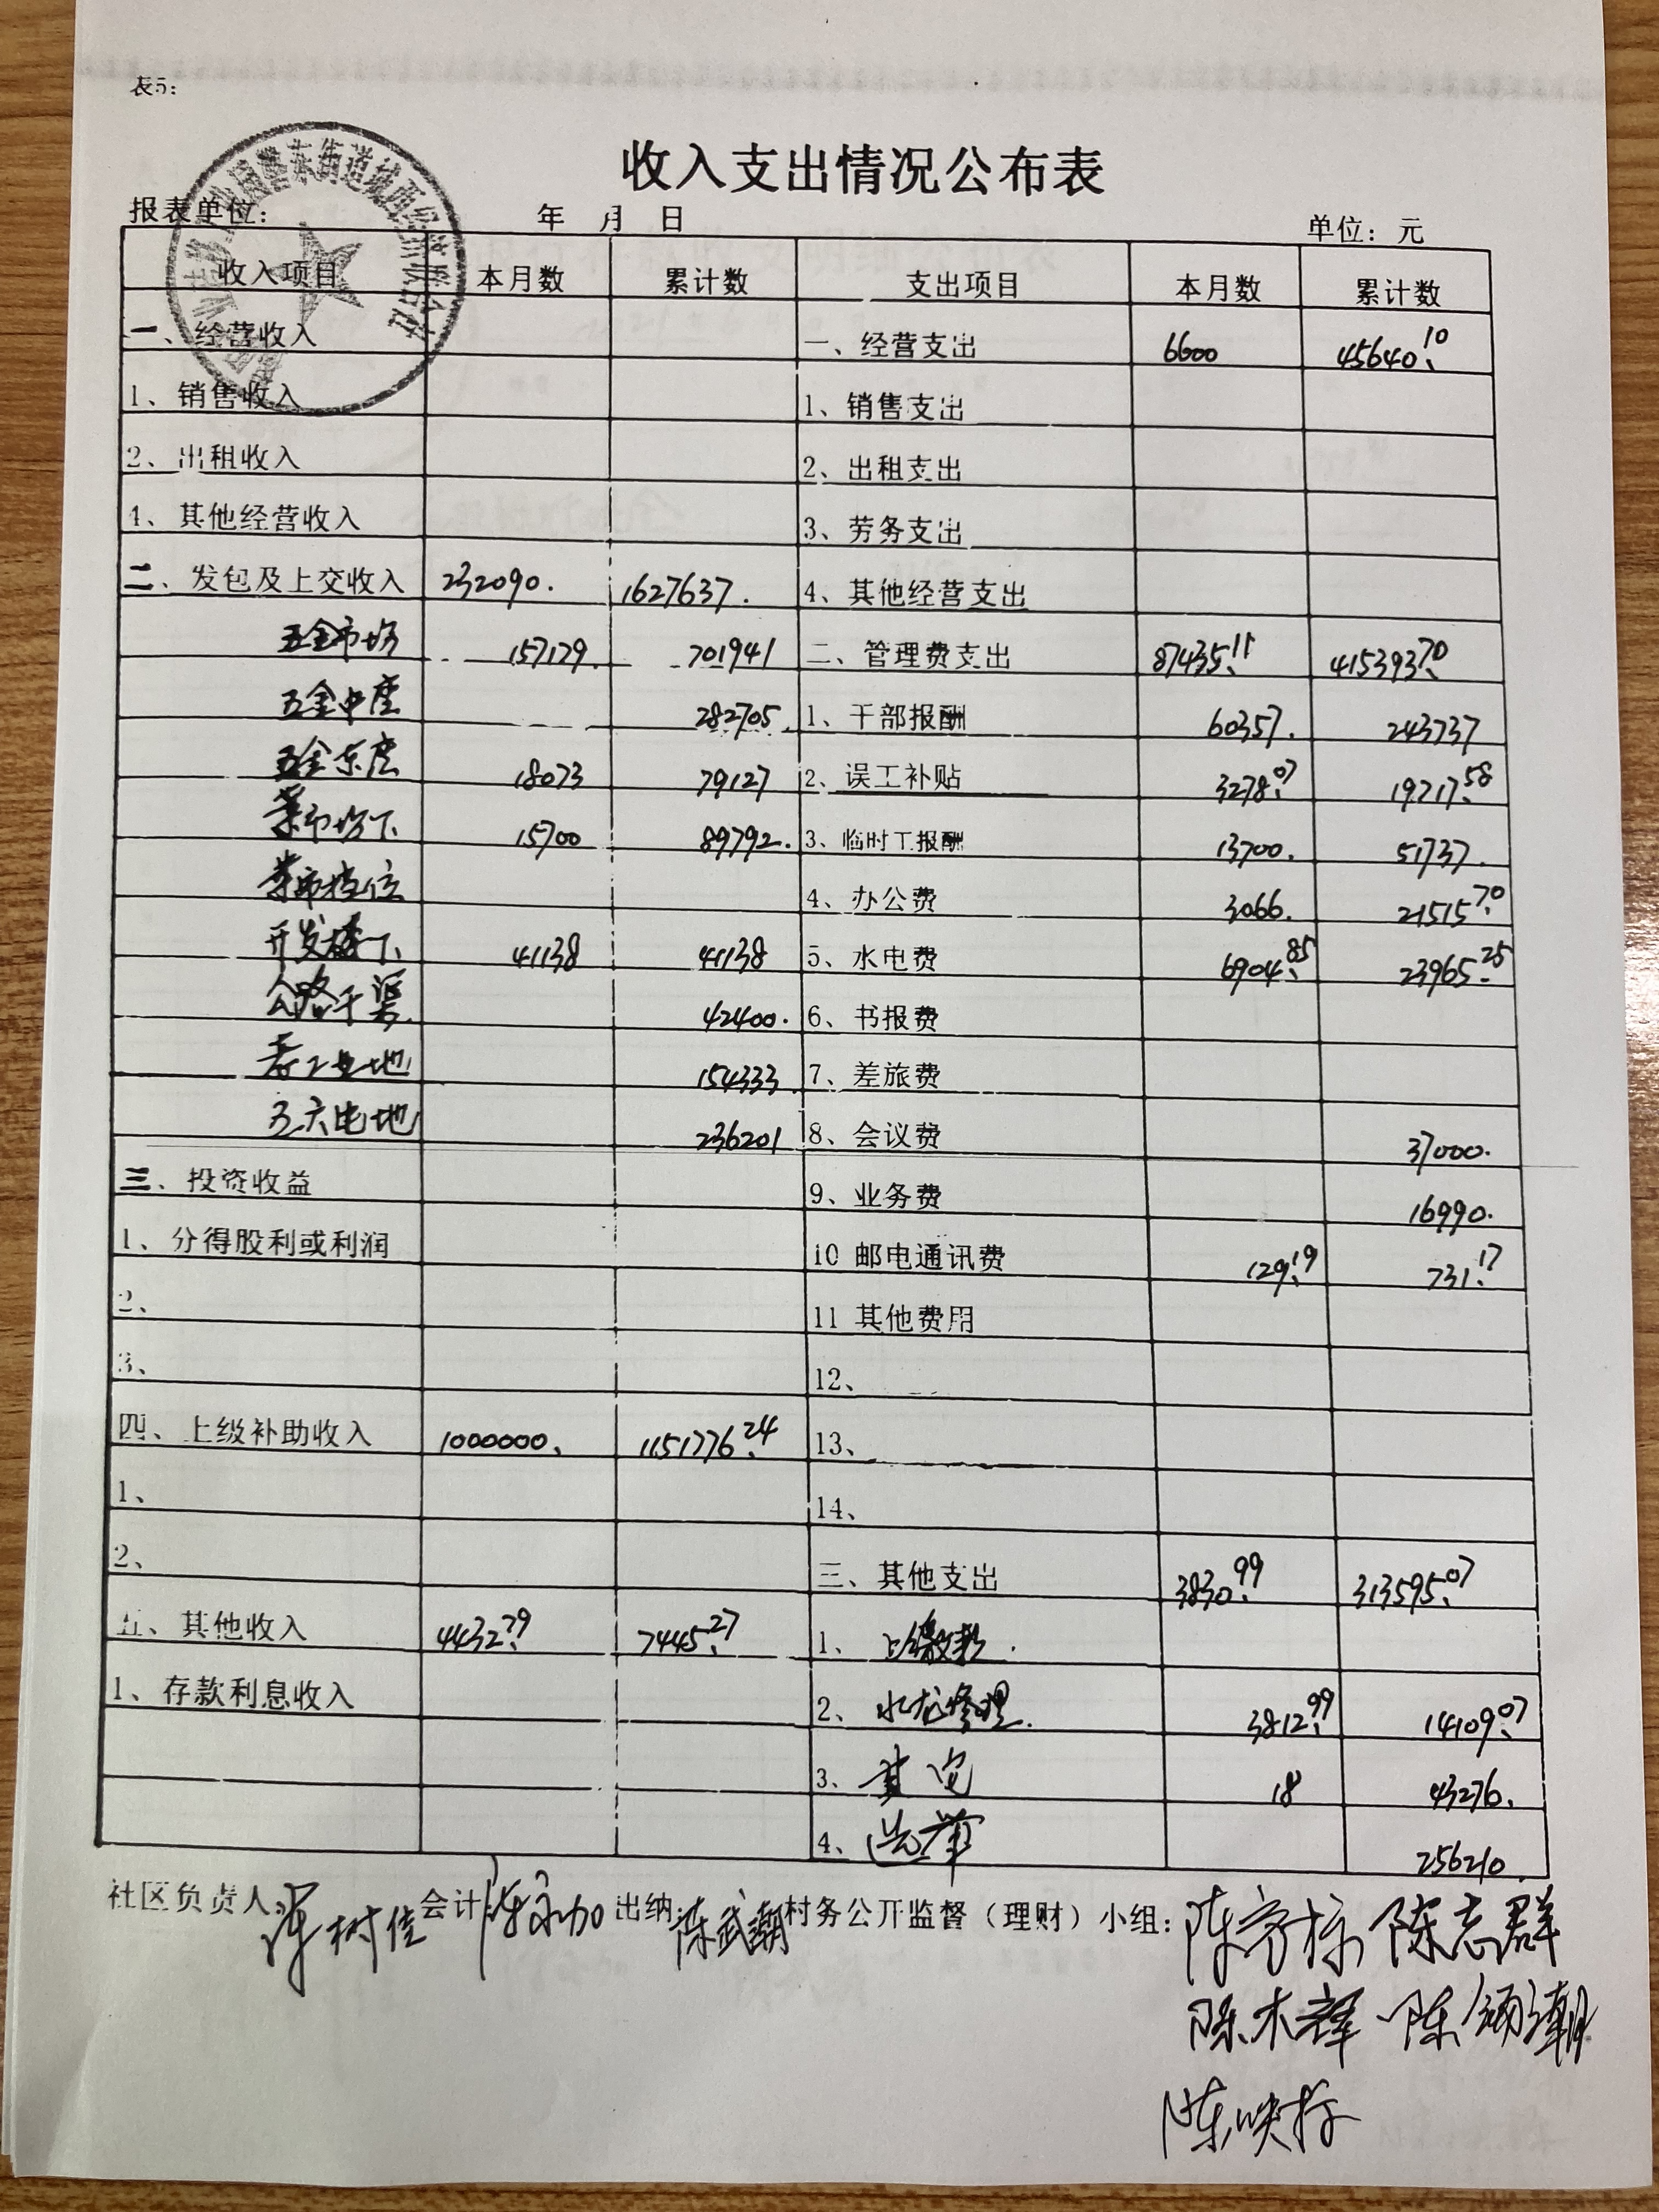 表5:
收入支出情况公布表
报表单位: 年 月 日 单位: 元
收入项目 本月数 累计数 支出项目 本月数 累计数
一、经营收入 一、经营支出 6600 45640.10
1、销售收入 1、销售支出
2、出租收入 2、出租支出
4、其他经营收入 3、劳务支出
二、发包及上交收入 232090. 1627637. 4、其他经营支出
五金市场 157129. 701941 二、管理费支出 87435.11 415393.70
五金中座 282705. 1、干部报酬 60357. 243737
五金东座 18073 79127 2、误工补贴 3278.07 19717.58
菜市场下 15700 89792. 3、临时工报酬 13700. 51737.
菜市档位 4、办公费 3066. 21515.70
开发楼下 41138 41138 5、水电费 6904.85 23965.25
公路干渠 42400. 6、书报费
工业地 154333. 7、差旅费
五六电地 236201 8、会议费 37000.
三、投资收益 9、业务费 16990.
1、分得股利或利润 10 邮电通讯费 129.19 731.17
2、 11 其他费用
3、 12、
四、上级补助收入 1000000. 1151776.24 13、
1、 14、
2、 三、其他支出 3830.99 313595.07
五、其他收入 4432.79 7445.27 1、上缴款.
1、存款利息收入 2、水龙修理. 3812.99 14109.07
3、其它 18 43276.
4、选举 256210.
社区负责人: 树佳 会计: 陈永加 出纳: 陈武潮 村务公开监督（理财）小组: 陈 标 陈志群
陈木辉 陈 潮
陈映